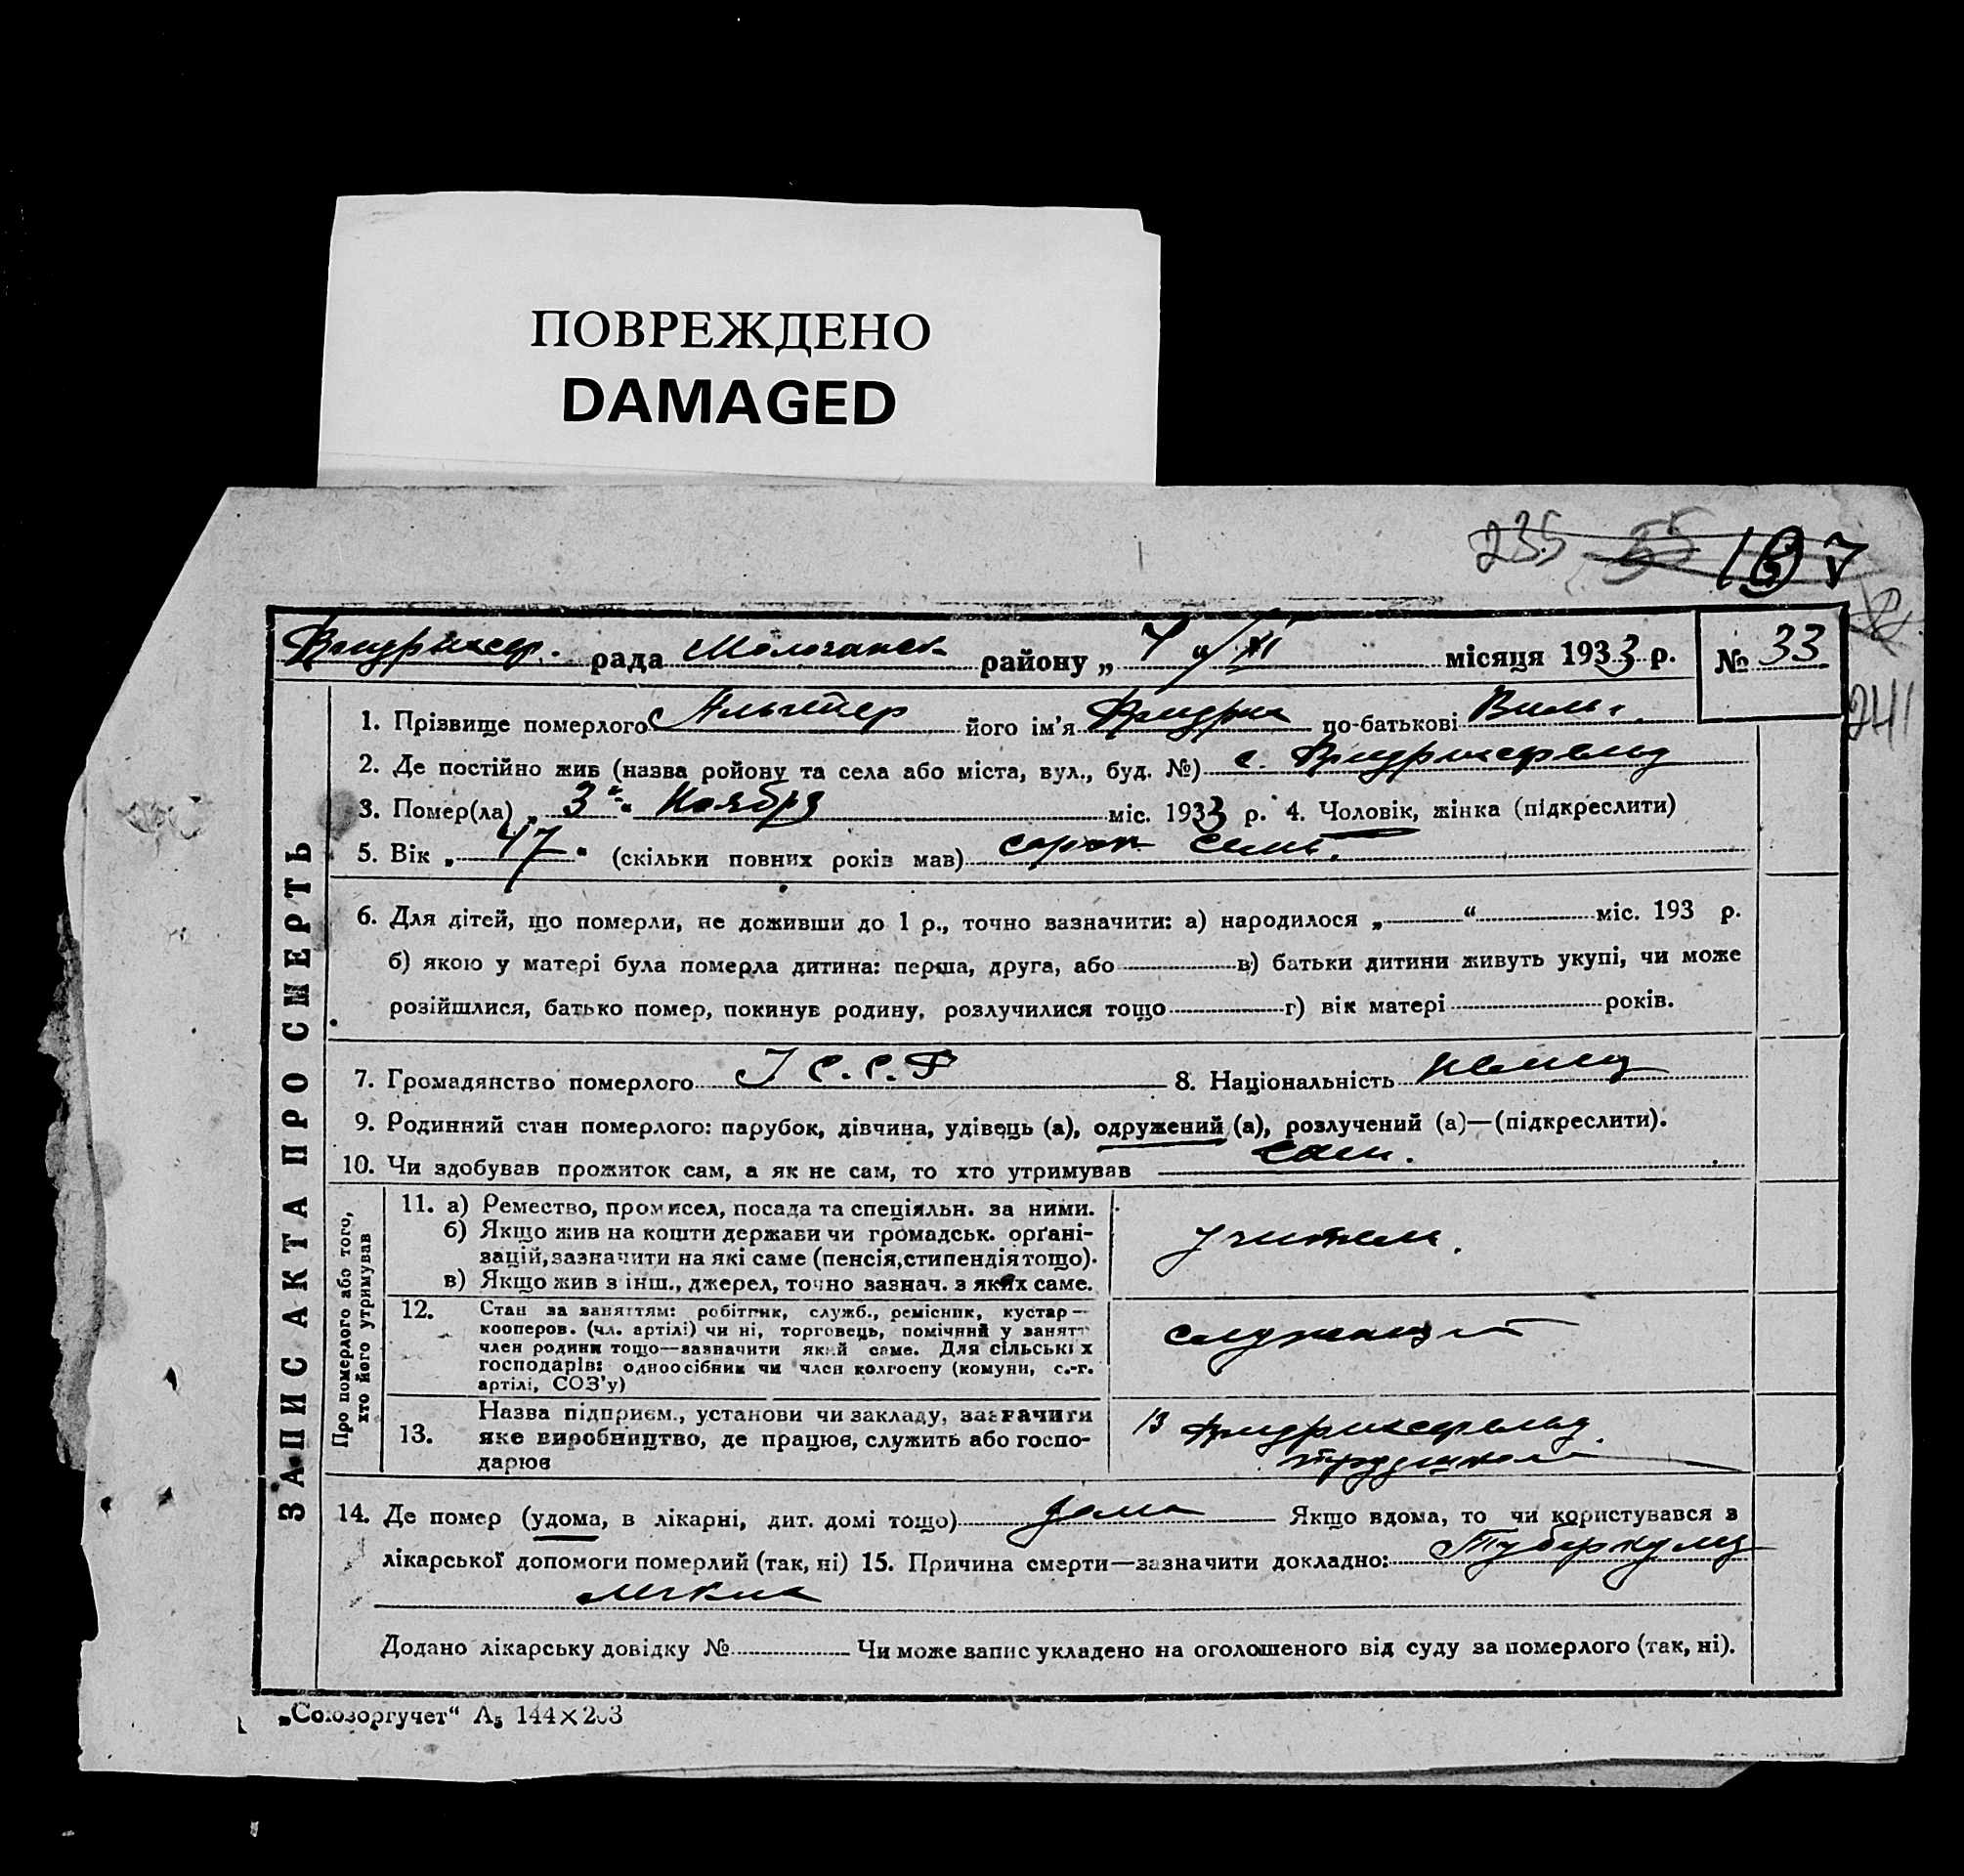 ПОВРЕЖДЕНО
DAMAGED
235 55 137
Фридрихсф. рада Молочанск району „ 4 “ XI місяця 1933 р. № 33
241
1. Прізвище померлого Альтер його ім’я Фридрих по-батькові Вильг.
2. Де постійно жив (назва ройону та села або міста, вул., буд. №) с. Фридрихсфельд
3. Помер(ла) „ 3 “ Ноября міс. 1933 р. 4. Чоловік, жінка (підкреслити)
5. Вік „ 47 “ (скільки повних років мав) сорок семь.
6. Для дітей, що померли, не доживши до 1 р., точно зазначити: а) народилося „ “ міс. 193 р.
б) якою у матері була померла дитина: перша, друга, або в) батьки дитини живуть укупі, чи може
розійшлися, батько помер, покинув родину, розлучилися тощо г) вік матері років.
7. Громадянство померлого У С.С.Р 8. Національність Немец
9. Родинний стан померлого: парубок, дівчина, удівець (а), одружений (а), розлучений (а)—(підкреслити).
10. Чи здобував прожиток сам, а як не сам, то хто утримував Сам.
ЗАПИС АКТА ПРО СМЕРТЬ
Про померлого або того,
хто його утримував
11. а) Ремество, промисел, посада та спеціяльн. за ними.
б) Якщо жив на кошти держави чи громадськ. орґані-
зацій, зазначити на які саме (пенсія, стипендія тощо).
в) Якщо жив з інш., джерел, точно зазнач. з яких саме.
учитель.
12. Стан за заняттям: робітник, служб., ремісник, кустар —
кооперов. (чл. артілі) чи ні, торговець, помічний у занятт
член родини тощо—зазначити який саме. Для сільських
господарів: одноосібник чи член колгоспу (комуни, с.-г.
артілі, СОЗ’у)
служащий
13. Назва підприєм., установи чи закладу, зазначити
яке виробництво, де працює, служить або госпо-
дарює
в Фридрихсфельд.
трудшколе
14. Де помер (удома, в лікарні, дит. домі тощо) дома Якщо вдома, то чи користувався з
лікарської допомоги померлий (так, ні) 15. Причина смерти—зазначити докладно: Туберкулез
легких
Додано лікарську довідку № Чи може запис укладено на оголошеного від суду за померлого (так, ні).
„Союзоргучет“ А5 144×203